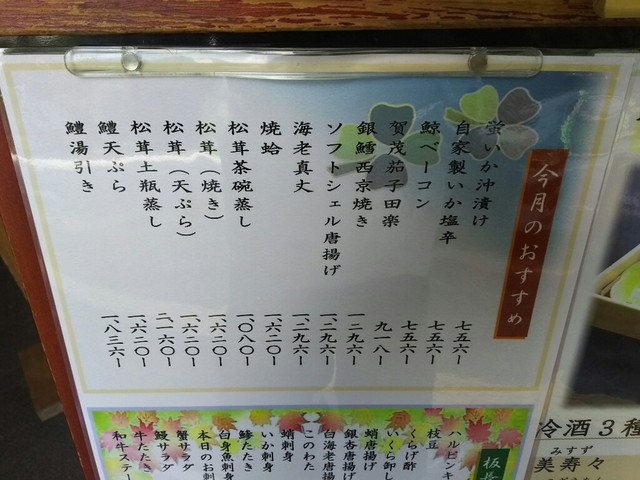 今月のおすすめ
螢いか沖漬け 七五六ー
自家製いか塩辛 七五六ー
鯨ベーコン 七五六ー
賀茂茄子田楽 九一八ー
銀鱈西京焼き 一二九六ー
ソフトシェル唐揚げ 一二九六ー
海老真丈 一二九六ー
焼蛤 一六二〇ー
松茸茶碗蒸し 一〇八〇ー
松茸（焼き） 一六二〇ー
松茸（天ぷら） 一六二〇ー
松茸土瓶蒸し 二一六〇ー
鱧天ぷら 一六二〇ー
鱧湯引き 一八三六ー
板長
枝豆
くらげ酢
いくら卸し
蛸唐揚げ
銀杏唐揚
白海老唐揚
このわた
蛸刺身
いか刺身
鯵たたき
白身魚刺身
本日のお刺
蟹サラダ
鰻サラダ
牛たたき
和牛ステー
冷酒3種
みすず
美寿々